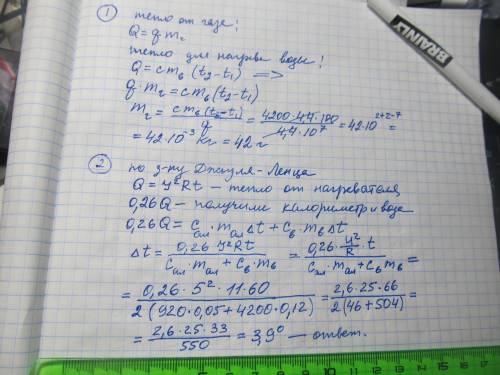 1
тепло от газа!
Q = q mг
тепло для нагрева воды!
Q = c mв (t2 - t1) =>
q · mг = c mв (t2 - t1)
mг = c mв (t2 - t1) / q = 4200 · 4,4 · 100 / 4,4 · 10^7 = 42 · 10^2+2-7 =
= 42 · 10^-3 кг = 42 г
2
по з-ну Джоуля-Ленца
Q = У²Rt — тепло от нагревателя
0,26Q — получили калориметр и вода
0,26Q = Cал · mал Δt + Cв · mв Δt
Δt = 0,26 · У²Rt / Cал · mал + Cв · mв = 0,26 · У²/R · t / Cал · mал + Cв mв =
= 0,26 · 5² · 11 · 60 / 2 (920 · 0,05 + 4200 · 0,12) = 2,6 · 25 · 66 / 2 (46 + 504) =
= 2,6 · 25 · 33 / 550 = 3,9° — ответ.
BRAINLY
1 2 3 4 5 6 7 8 9 10 11 12 13